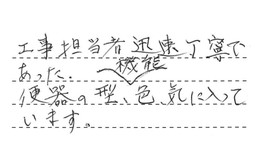 工事担当者迅速丁寧で
あった.
便器の機能、型、色、気に入って
います。